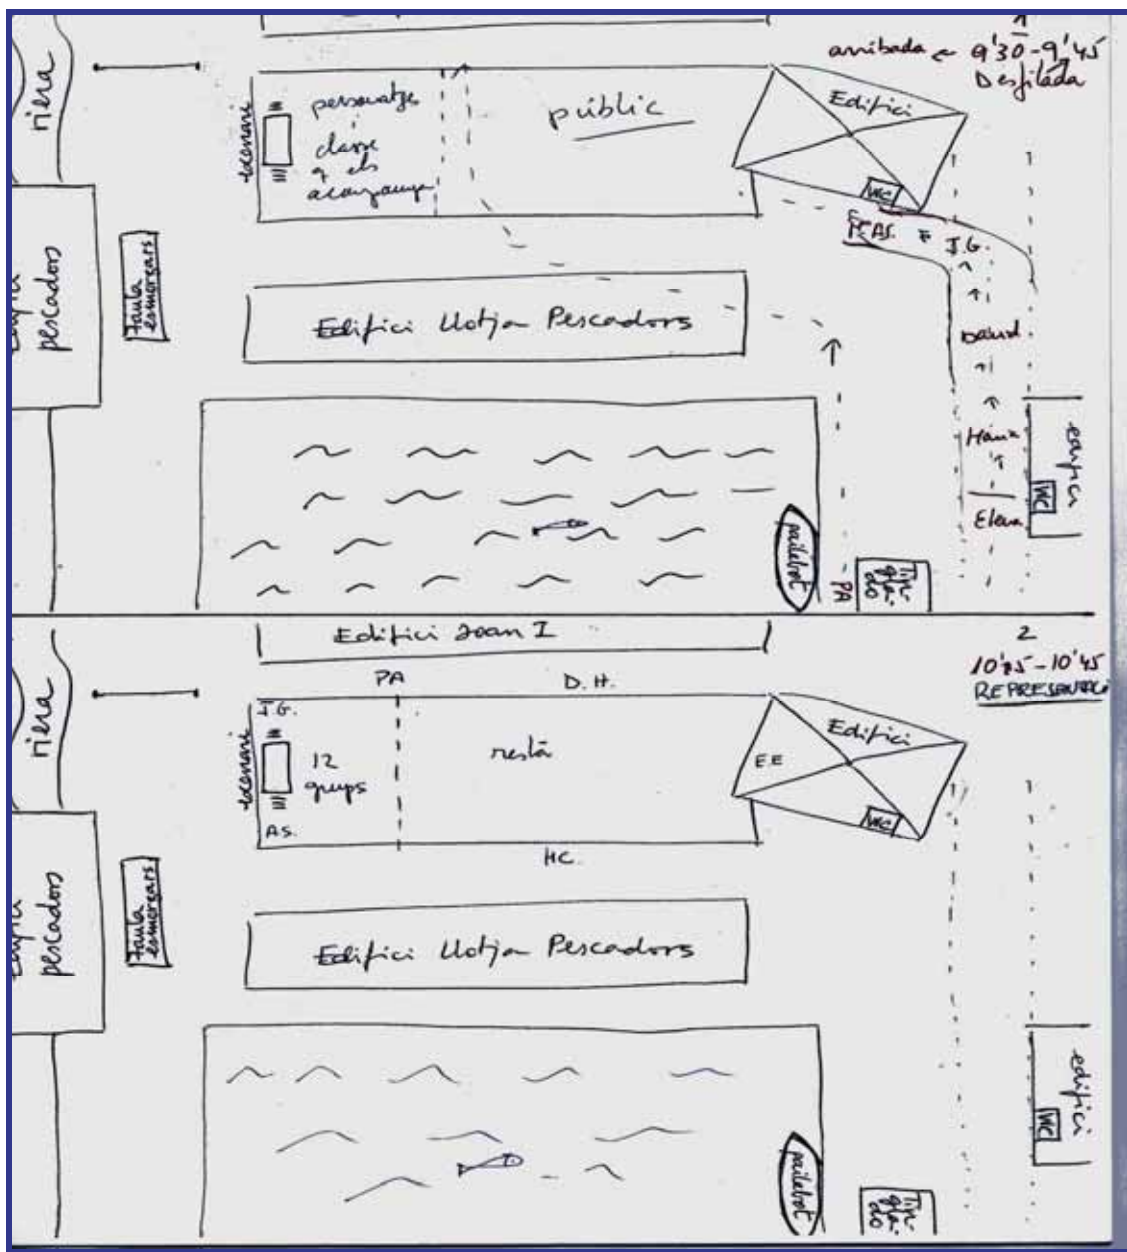 1
arribada ← 9'30-9'45
Desfilada
riera
escenari
personatge
i
classe
q els
acompanya
públic
Edifici
WC
AS.
J.G.
pescadors
Taula
esmorçars
Edifici Llotja Pescadors
David
Maria
Elena
edifici
WC
pailebot
PA
Tin-
gla-
do
Edifici Joan I
2
10'15-10'45
riera
PA
D.H.
J.G.
escenari
12
grups
A.S.
resta
E.E
Edifici
WC
HC.
pescadors
Taula
esmorçars
Edifici Llotja Pescadors
edifici
WC
pailebot
Tin-
gla-
do